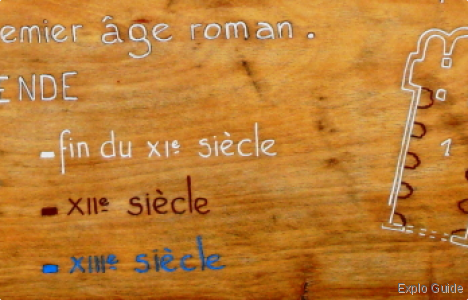 emier âge roman.
ENDE
fin du XIe siècle
XIIe siècle
XIIIe siècle
1
Explo Guide